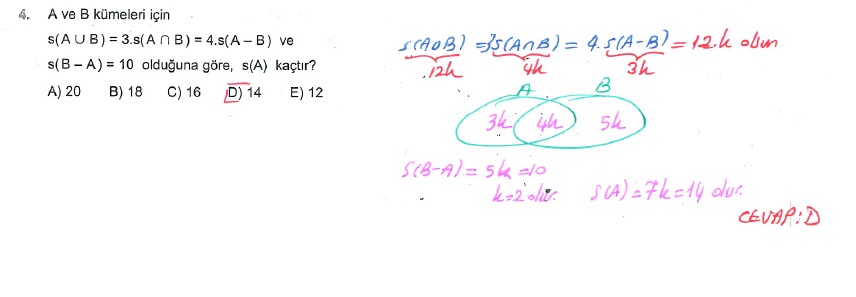 4. A ve B kümeleri için
s(A ∪ B) = 3.s(A ∩ B) = 4.s(A – B) ve
s(B – A) = 10 olduğuna göre, s(A) kaçtır?
A) 20 B) 18 C) 16 D) 14 E) 12
s(A∪B) = 3s(A∩B) = 4.s(A-B) = 12.k olsun
12k 4k 3k
A B
3k 4k 5k
s(B-A) = 5k = 10
k=2 olur. s(A) = 7k = 14 olur.
CEVAP: D